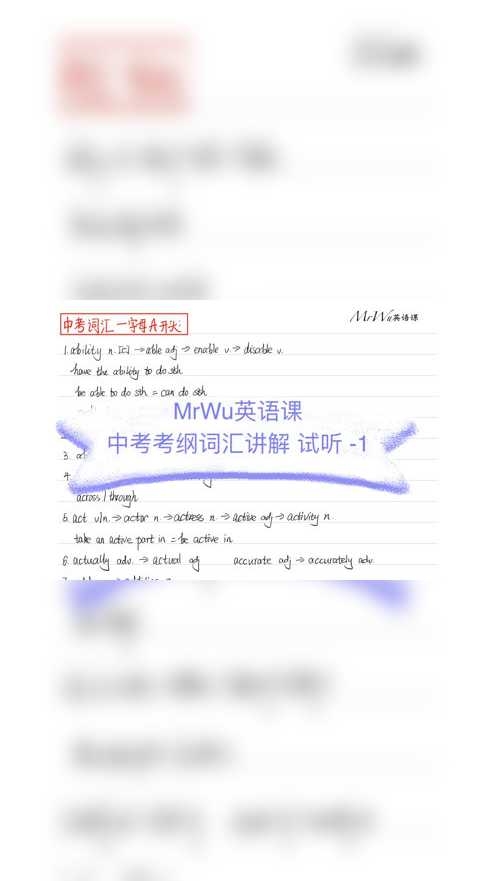 中考词汇一字母A开头:
MrWu英语课
1. ability n. [c] → able adj → enable v. → disable v.
have the ability to do sth
be able to do sth = can do sth
MrWu英语课
中考考纲词汇讲解 试听 -1
3.
4.
across / through
5. act v/n. → actor n. → actress n. → active adj → activity n.
take an active part in = be active in
6. actually adv. → actual adj accurate adj → accurately adv.